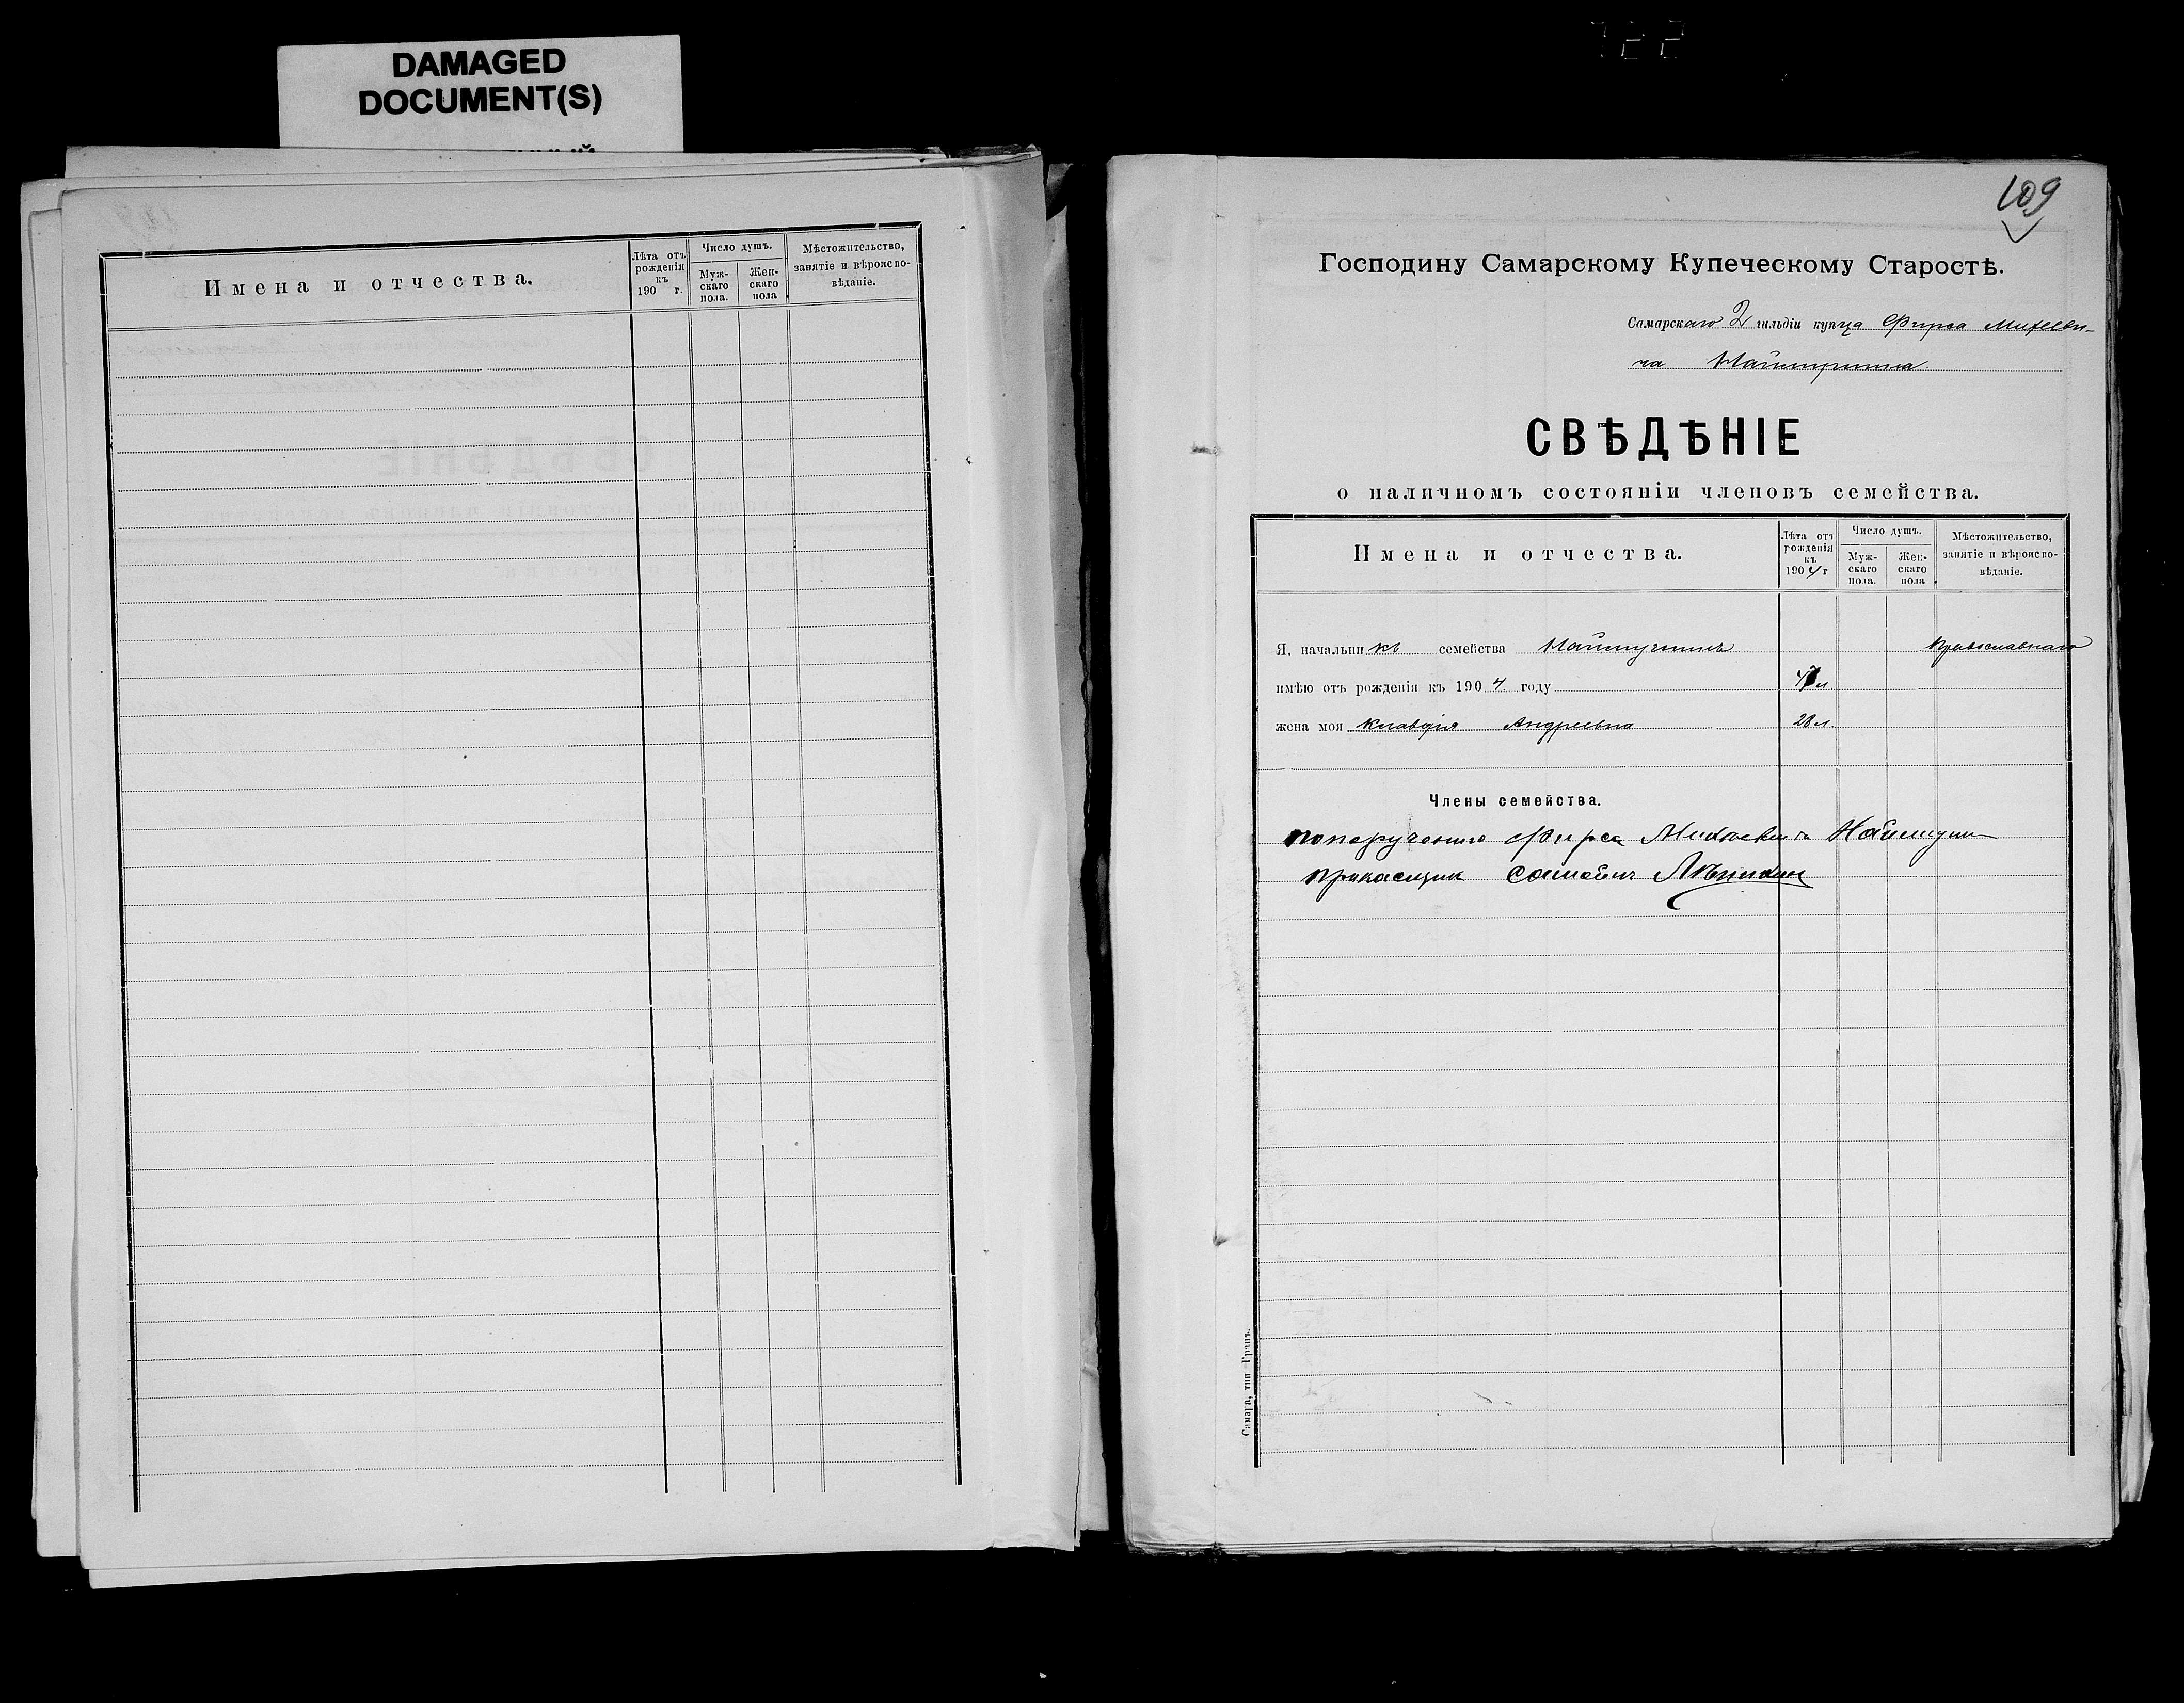 DAMAGED
DOCUMENT(S)
Имена и отчества.
Лѣта отъ рожденія къ 190 г.
Число душъ.
Мужскаго пола.
Женскаго пола
Мѣстожительство, занятіе и вѣроисповѣданіе.
109
Господину Самарскому Купеческому Старостѣ.
Самарскаго 2 гильдіи купца Фирса Михееви-
ча
СВѢДѢНІЕ
о наличномъ состояніи членовъ семейства.
Имена и отчества.
Лѣта отъ рожденія къ 1904 г
Число душъ.
Мужскаго пола.
Женскаго пола
Мѣстожительство, занятіе и вѣроисповѣданіе.
Я, начальникъ семейства Православнаго
имѣю отъ рожденія къ 1904 году
жена моя Клавдія Андреевна 28 л.
Члены семейства.
по поручению Фирса Михеевича
Самара, тип Гринъ.